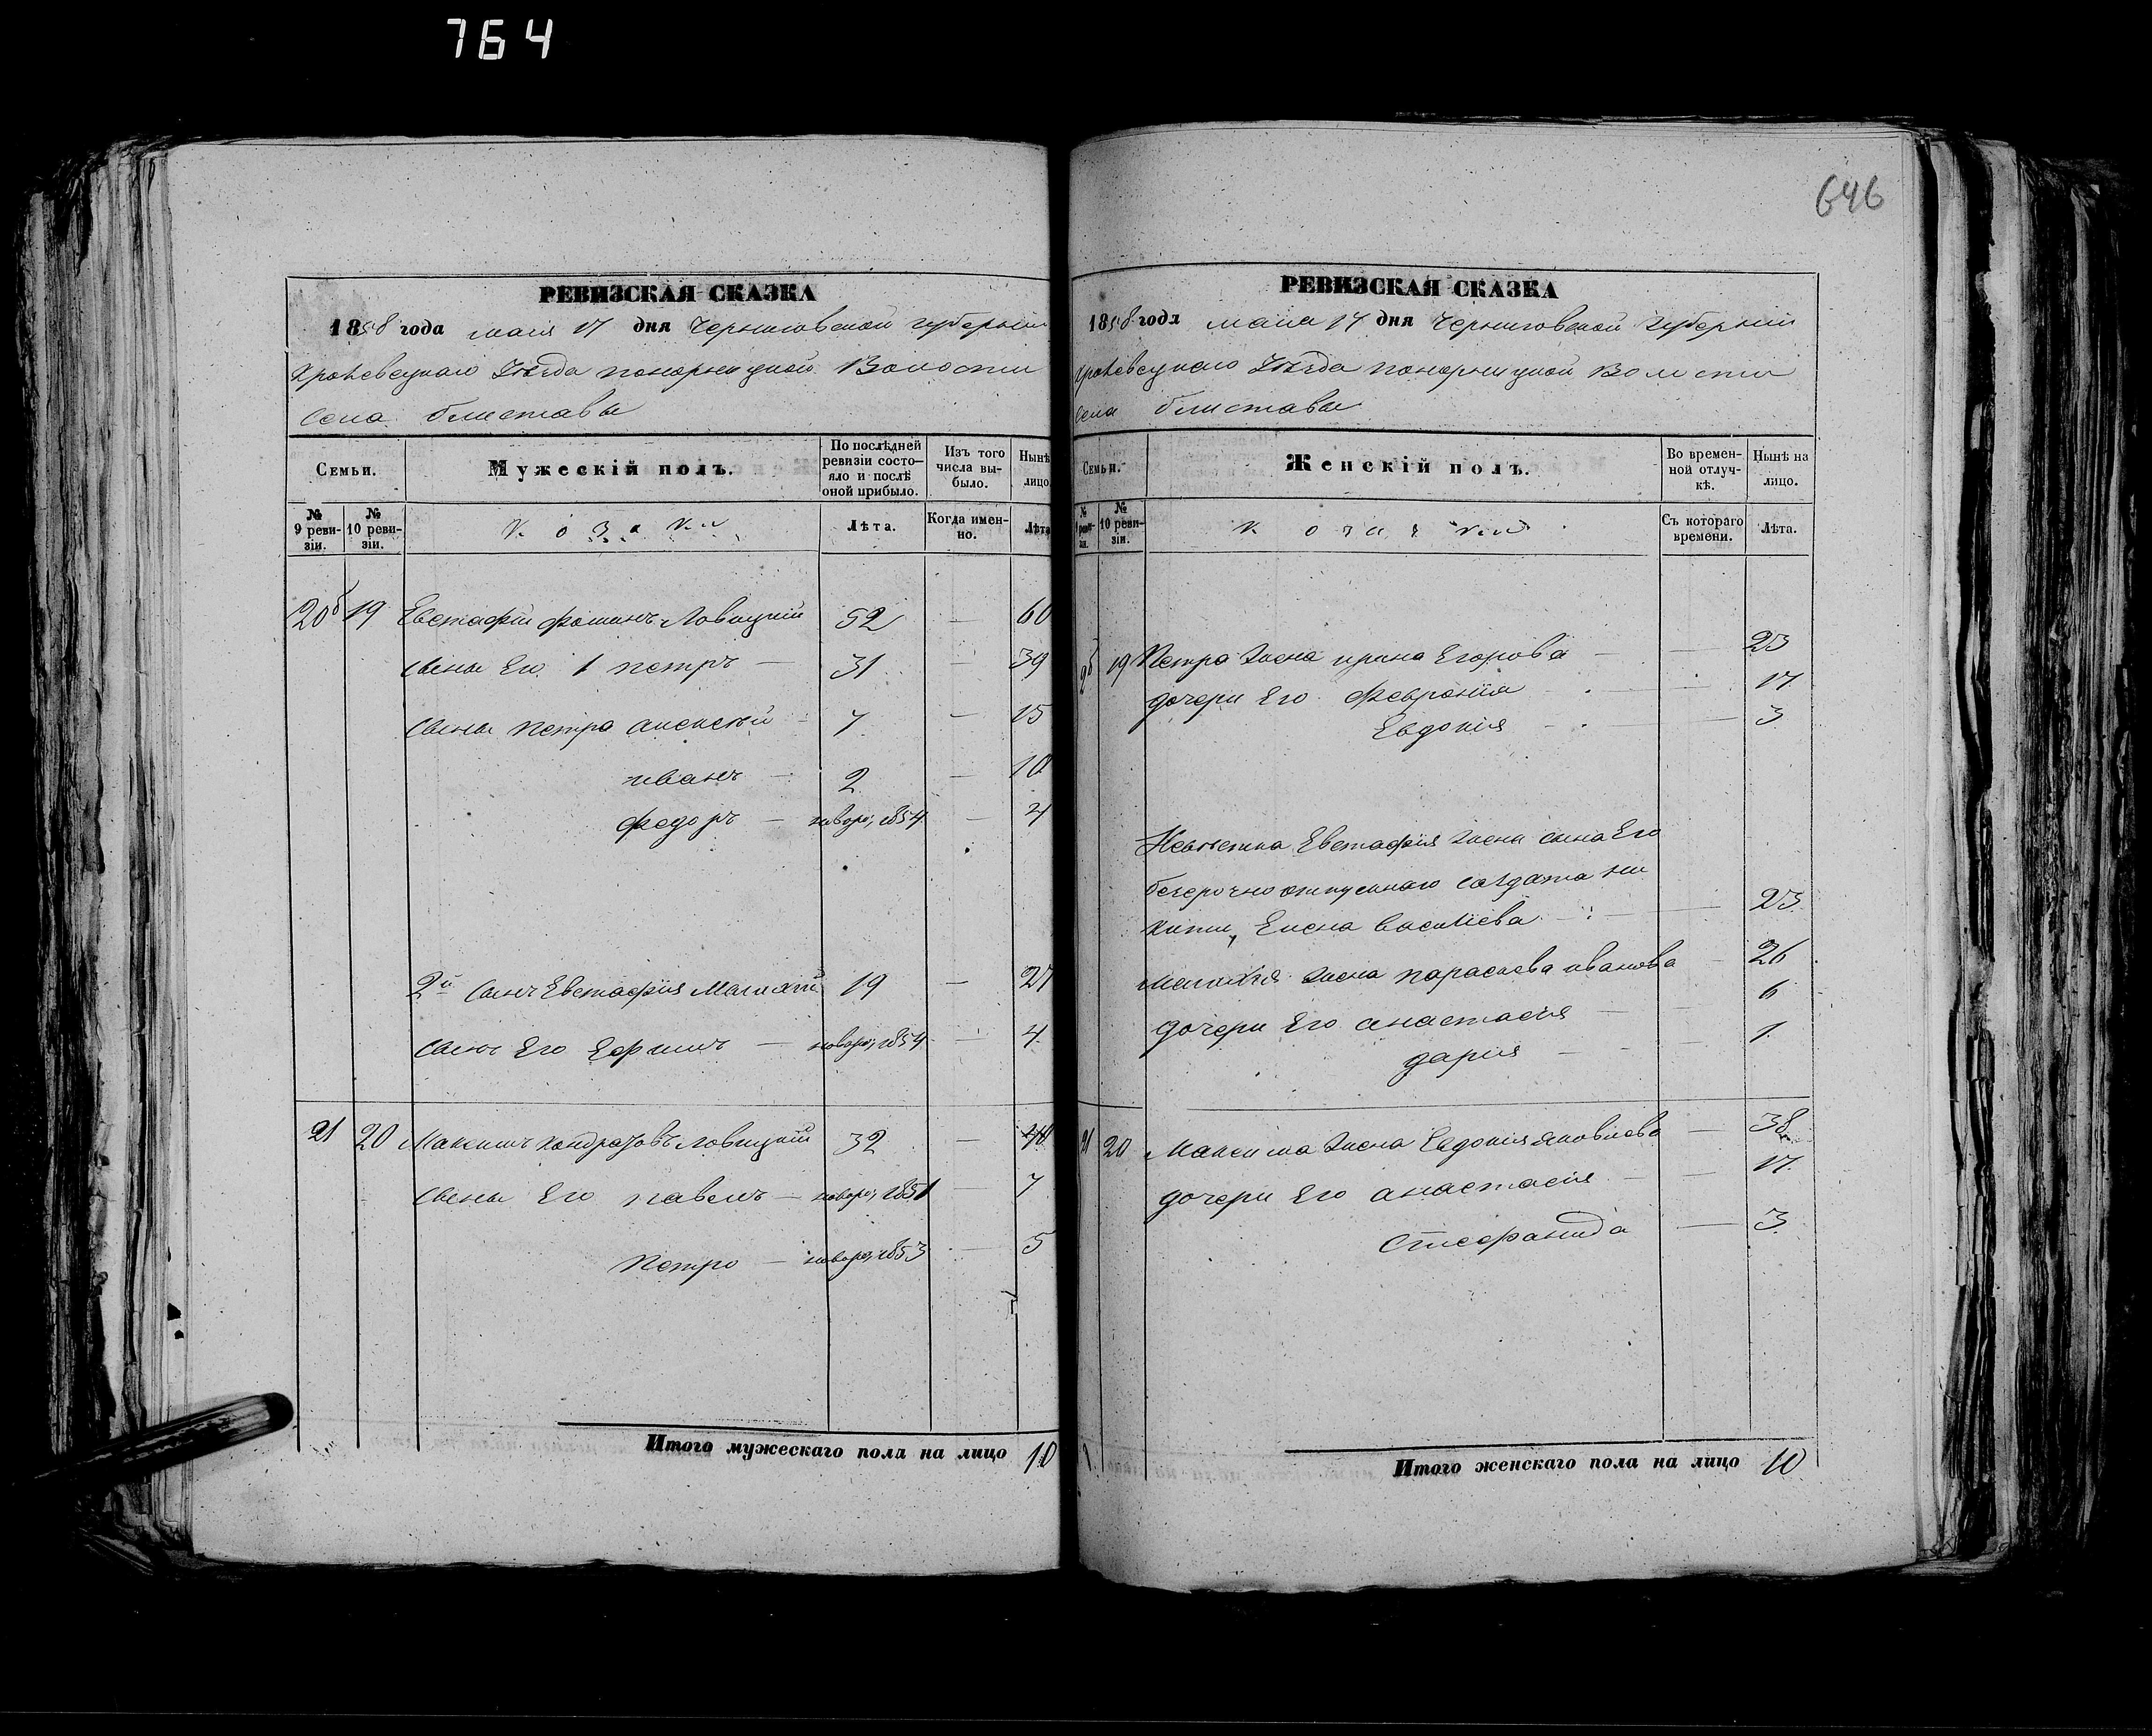 764
646
РЕВИЗСКАЯ СКАЗКА
1858 года мая 17 дня Черниговской губерніи
Кролевецкаго Уѣзда понорницкой Волости
Села блиставы
Семьи. Мужескій полъ. По послѣдней ревизіи состояло и послѣ оной прибыло. Изъ того числа выбыло. Нынѣ лицо.
№ 9 ревизіи. № 10 ревизіи. Козаки Лѣта. Когда именно. Лѣта
20б 19 Евстафій фоминъ Ловицкій 52 — 60
сыны Его 1 петръ — 31 39
сыны петра алексѣй — 7 — 15
иванъ — 2 — 10
федоръ — новоро, 1854 — 4
2й сынъ Евстафія 19 — 27
сынъ Его Ефимъ — новоро, 1854 — 4
21 20 Максимъ кондратовъ Ловицкій 32 — 40
сыны Его павелъ — новоро, 1851 — 7
петро — новоро, 1853 — 5
Итого мужескаго пола на лицо 10
РЕВИЗСКАЯ СКАЗКА
1858 года маия 17 дня Черниговской губерніи
Кролевецкаго Уѣзда понорницкой Волости
села блиставы
Семьи. Женскій полъ. Во временной отлучкѣ. Нынѣ на лицо.
№ 9 ревизіи. № 10 ревизіи. Козачки Съ котораго времени. Лѣта.
19 Петра жена ирина Егорова — — 23
дочери Его Феврония — 17
Евдокія — — 3
Невѣстка Евстафія жена сына Его
безсрочно отпускнаго солдата ни
киты, Елена василіева — — 23
жена параскева иванова — 26
дочери Его анастасія — — 6
дария — — — 1
21 20 Максима жена Евдокія яковлева — 38
дочери Его анастасія — — 17
Стеефанида — 3
Итого женскаго пола на лицо 10